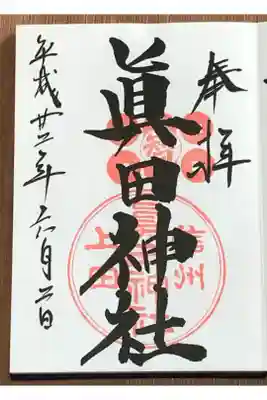 奉拝
眞田神社
信州
上田
平成廿二年六月二日